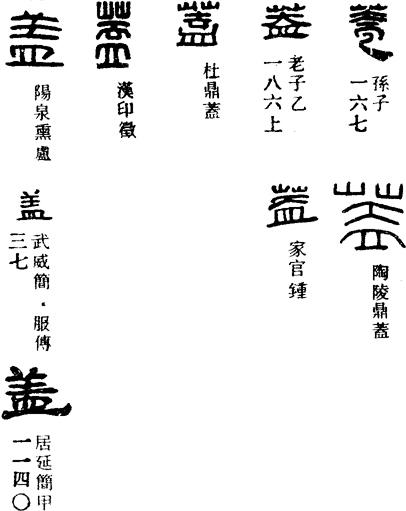 蓋
孫子
一六七
蓋
陶陵鼎蓋
蓋
老子乙
一八六上
蓋
家官鍾
蓋
杜鼎蓋
蓋
漢印徵
盖
陽泉熏盧
盖
武威簡・服傳
三七
盖
居延簡甲
一一四〇